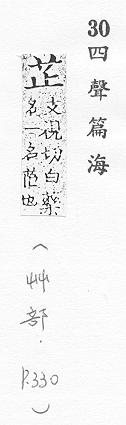 30 四聲篇海
芷
支視切白藥
名一名也
（艸部．P.330）